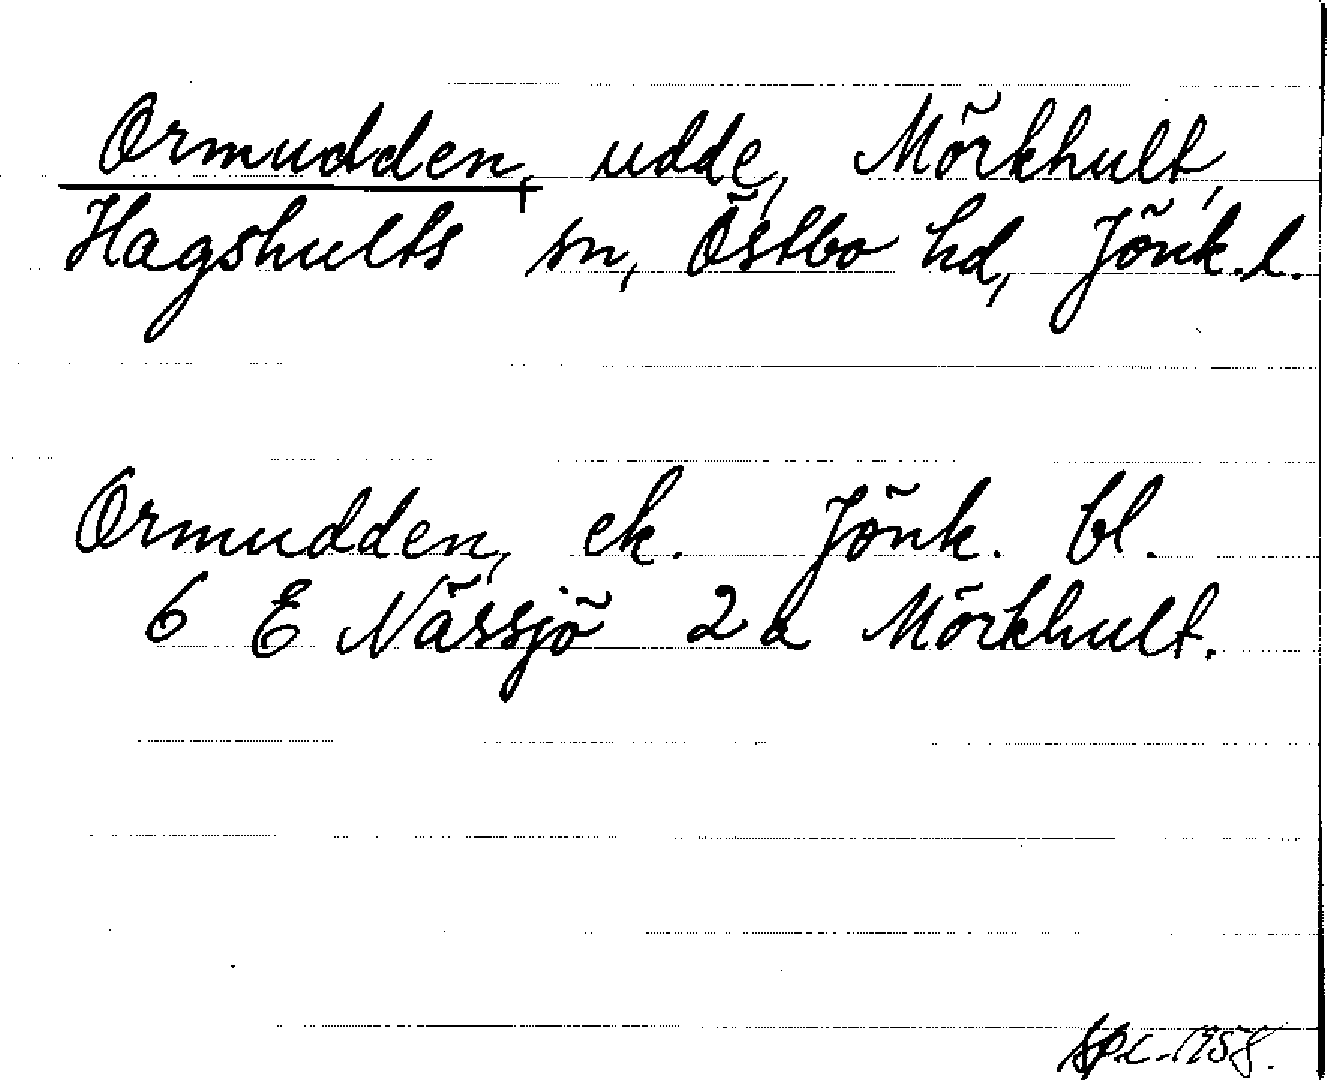 Ormudden, udde, Mörkhult,
Hagshults sn, Östbo hd, Jönk.l.
Ormudden, ek. Jönk. bl.
6 E Nässjö 2 a Mörkhult.
1958.